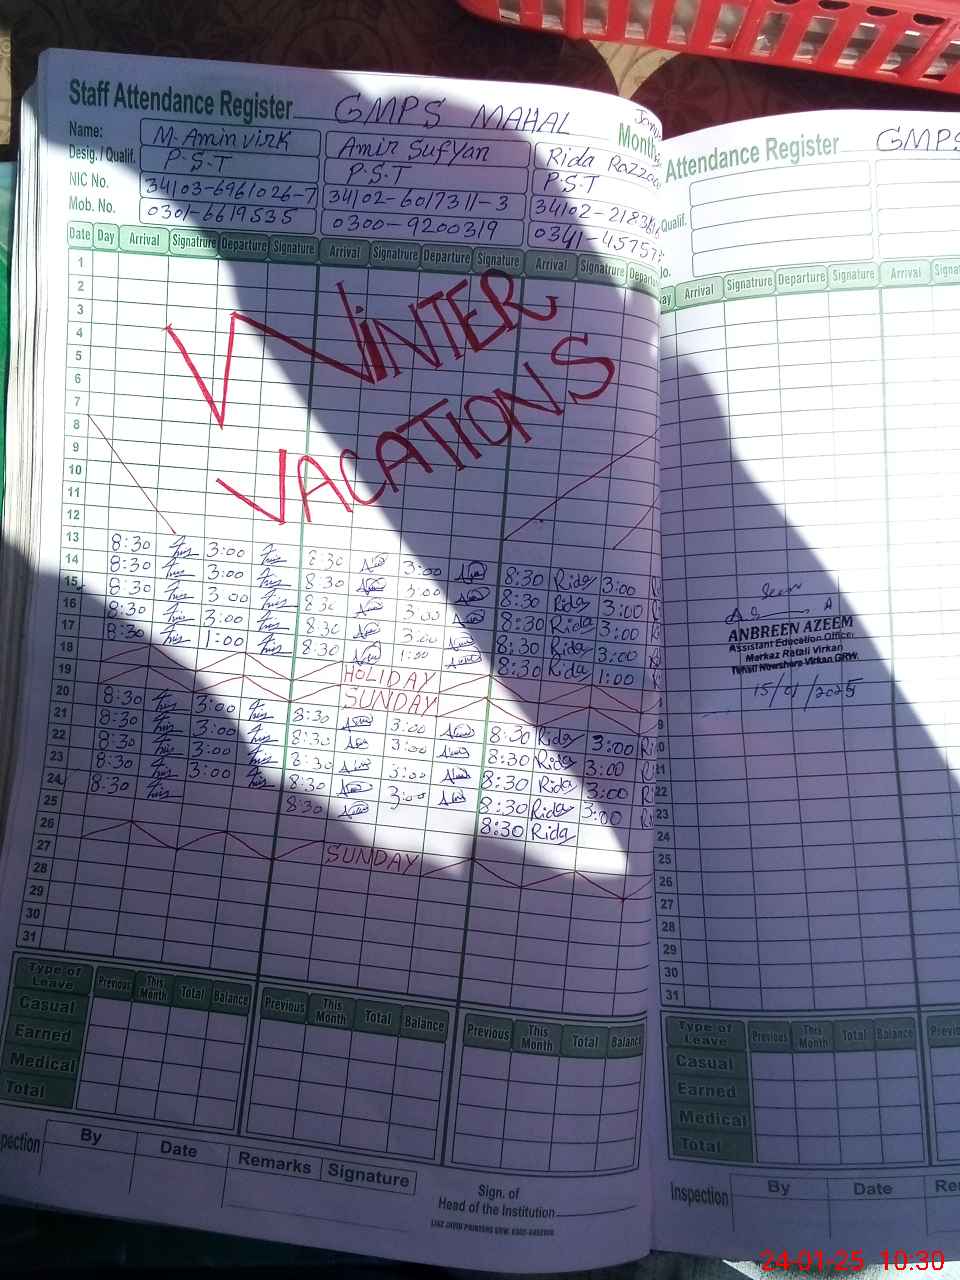 Staff Attendance Register GMPS MAHAL
Month
Name: M. Amin virk Amir Sufyan Rida Razzaq
Desig. / Qualif. P.S.T P.S.T P.S.T
NIC No. 34103-6961026-7 34102-6017311-3 34102-2183
Mob. No. 0301-6619535 0300-9200319 0341-4575
Date Day Arrival Signatrure Departure Signature Arrival Signatrure Departure Signature Arrival Signatrure Departure
1
2
3
4
5
6
7
8
9
10
11
12
WINTER
VACATIONS
13 8:30 3:00 8:30 3:00 8:30 Rida 3:00
14 8:30 3:00 8:30 3:00 8:30 Rida 3:00
15 8:30 3:00 8:30 3:00 8:30 Rida 3:00
16 8:30 3:00 8:30 3:00 8:30 Rida 3:00
17 8:30 1:00 8:30 1:00 8:30 Rida 1:00
18 HOLIDAY
19 SUNDAY
20 8:30 3:00 8:30 3:00 8:30 Rida 3:00
21 8:30 3:00 8:30 3:00 8:30 Rida 3:00
22 8:30 3:00 8:30 3:00 8:30 Rida 3:00
23 8:30 3:00 8:30 3:00 8:30 Rida 3:00
24 8:30 8:30 8:30 Rida
25
26 SUNDAY
27
28
29
30
31
Type of Leave Previous This Month Total Balance Previous This Month Total Balance Previous This Month Total Balance
Casual
Earned
Medical
Total
By Date Remarks Signature
Sign. of
Head of the Institution
Attendance Register GMPS
Qualif.
Arrival Signatrure Departure Signature Arrival
ANBREEN AZEEM
Assistant Education Officer
Markaz Ratali Virkan
Tehsil Nowshera Virkan GRW.
15/01/2025
21
22
23
24
25
26
27
28
29
30
31
Type of Leave Previous This Month Total Balance
Casual
Earned
Medical
Total
Inspection By Date
24-01-25 10:30